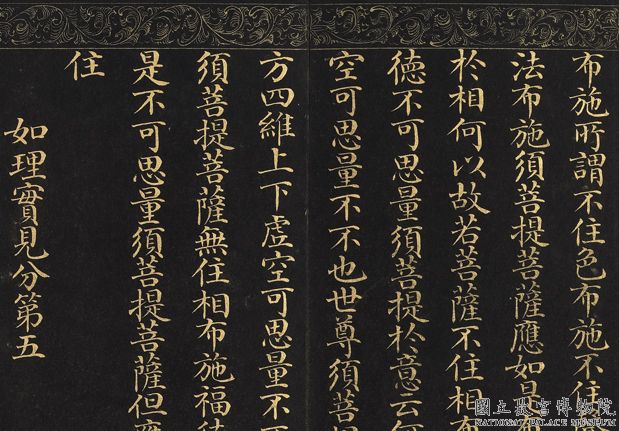 布施所謂不住色布施不住
法布施須菩提菩薩應如是
於相何以故若菩薩不住相布
德不可思量須菩提於意云何
空可思量不不也世尊須菩
方四維上下虛空可思量不不
須菩提菩薩無住相布施福德
是不可思量須菩提菩薩但應
住
如理實見分第五
國立故宮博物院
NATIONAL PALACE MUSEUM